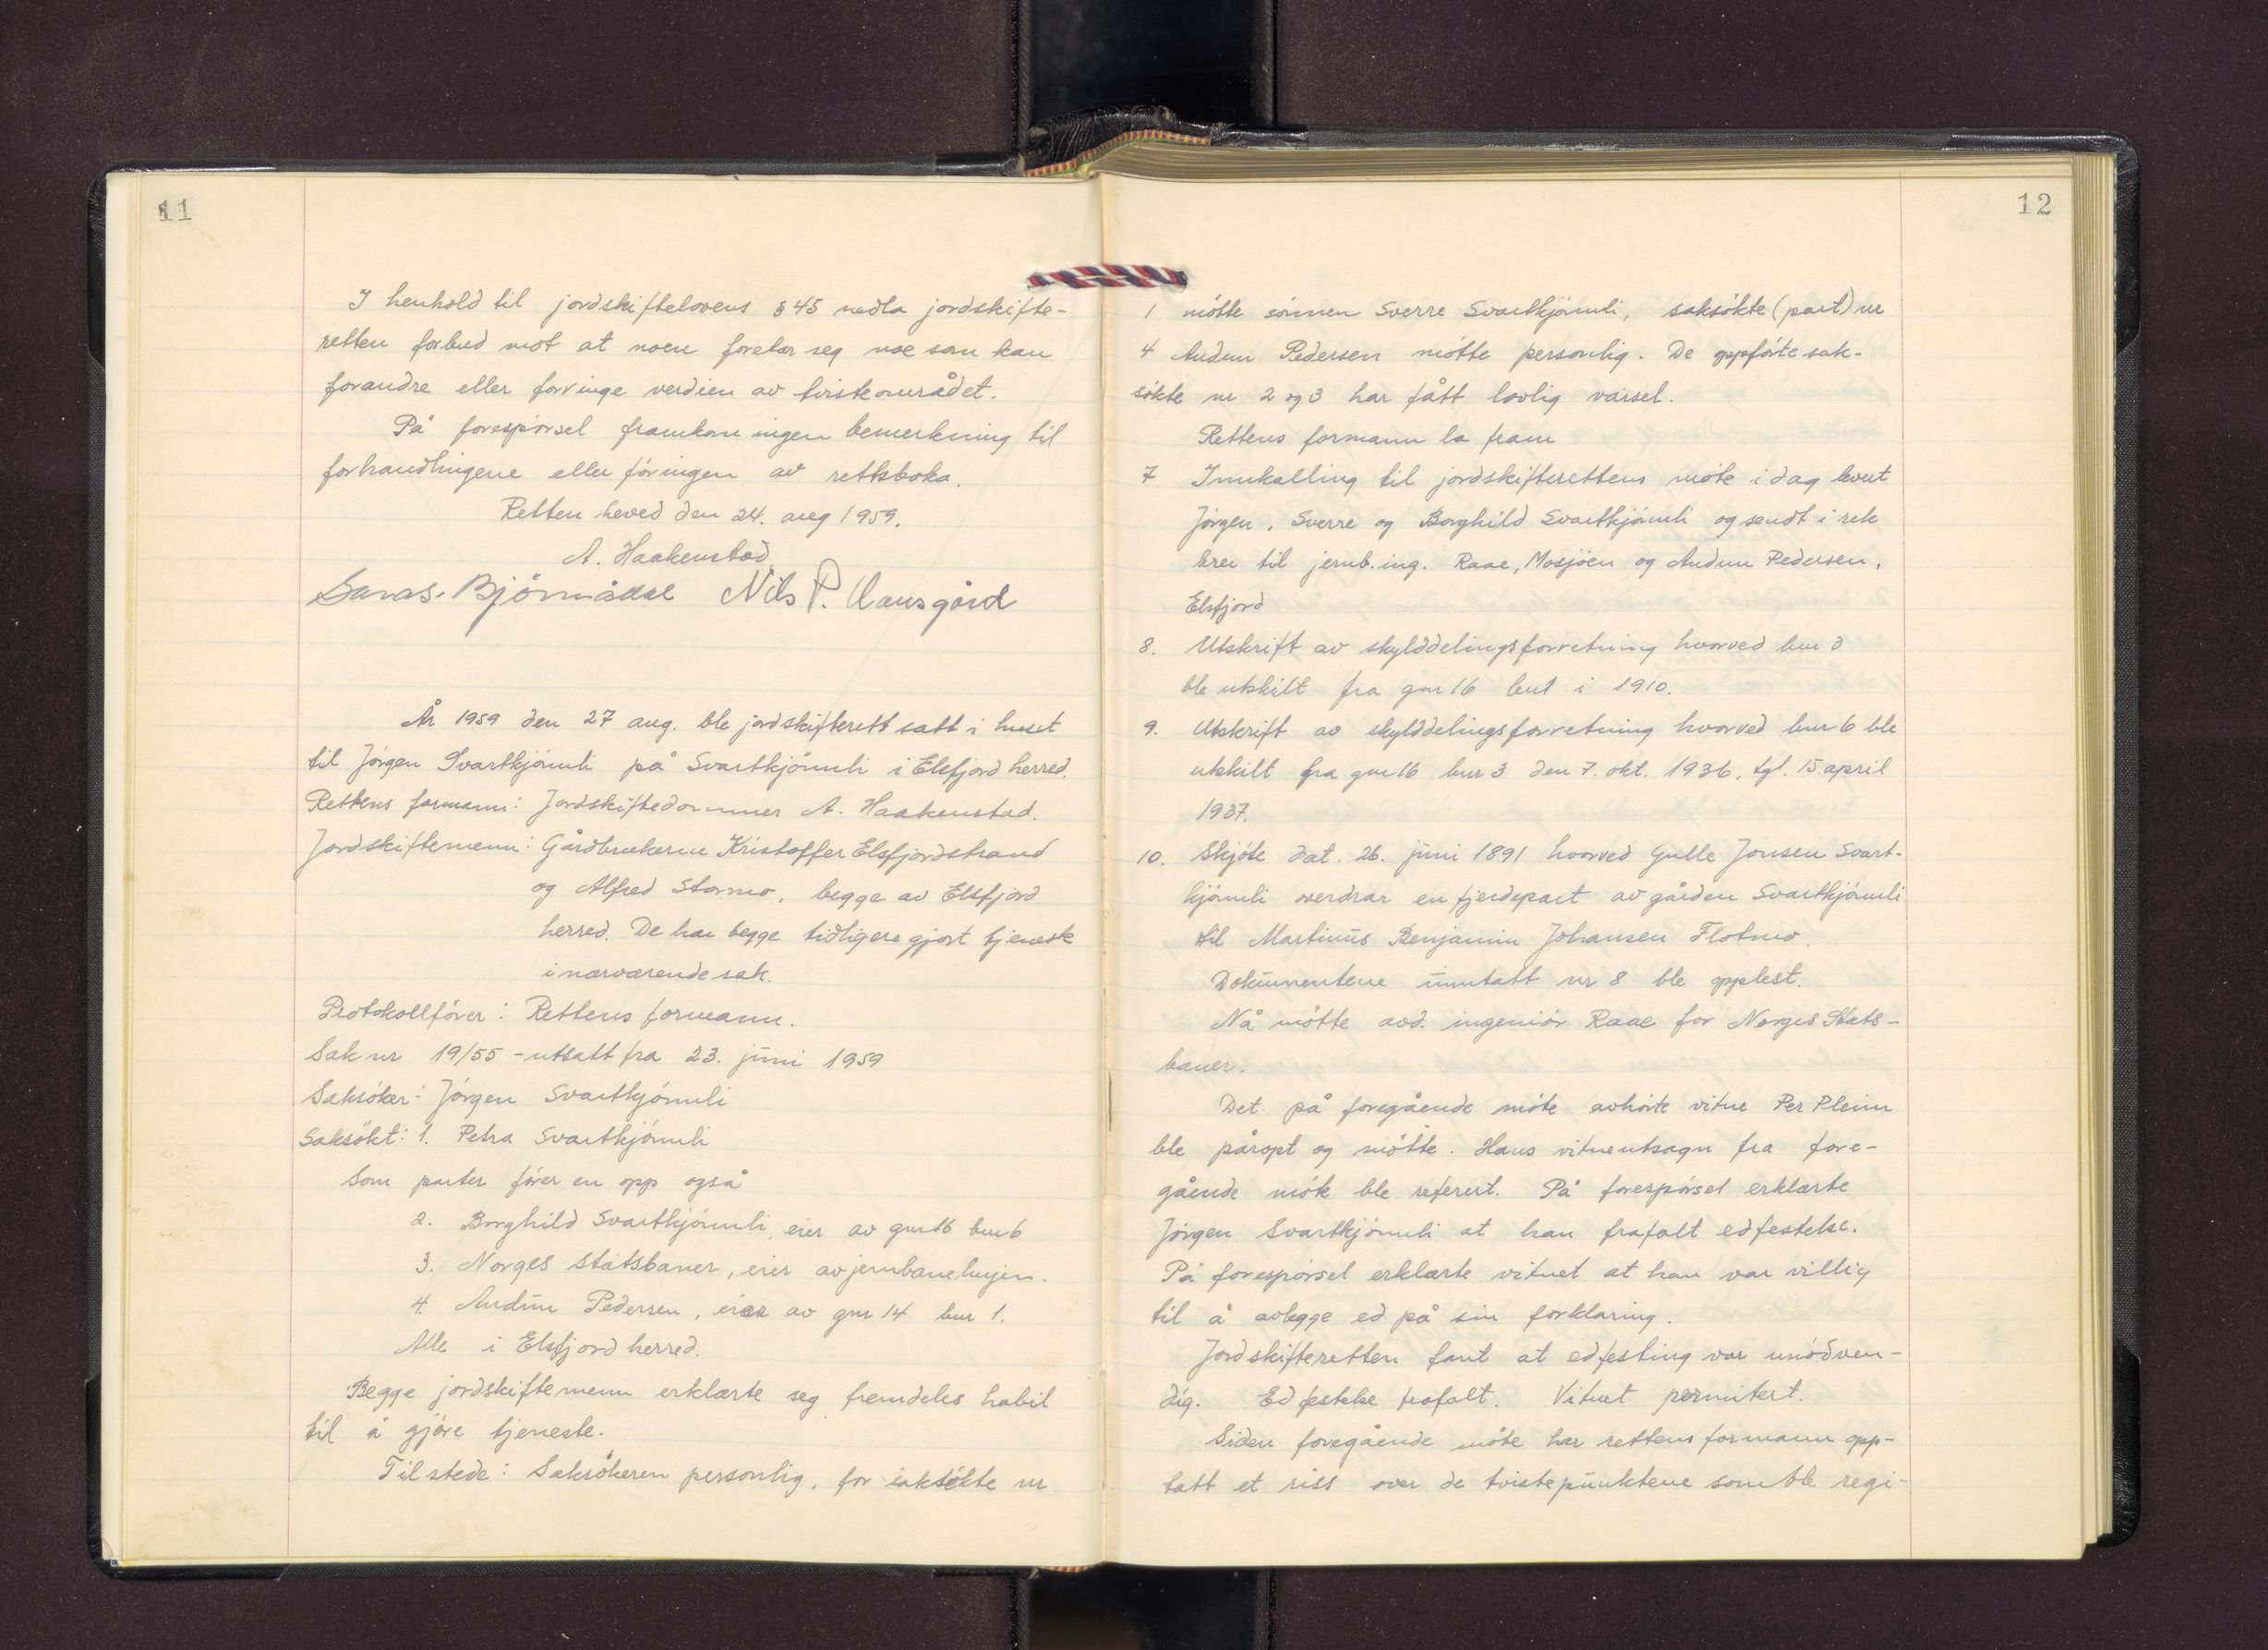 11
I henhold til jordskiftelovens § 45 nedla jordskifte-
retten forbud mot at noen foretar seg noe som kan
forandre eller forringe verdien av tvisteområdet.
På forespørsel framkom ingen bemerkning til
forhandlingene eller føringen av rettsboka.
Retten hevet den 24. aug 1959.
A. Haakenstad
Bjørnådal Nils P. Aansgård
År 1959 den 27 aug. ble jordskifterett satt i huset
til Jørgen Svarttkjømli på Svarttkjømli i Elsfjord herred.
Rettens formann: Jordskiftedommer A. Haakenstad.
Jordskiftemenn: Gårdbrukerne Kristoffer Elsfjordstrand
og Alfred Stormo, begge av Elsfjord
herred. De har begge tidligere gjort tjeneste
i nærværende sak.
Protokollfører: Rettens formann.
Sak nr 19/55 - utsatt fra 23. juni 1959
Saksøker: Jørgen Svarttkjømli
Saksøkt: 1. Petra Svarttkjømli
Som parter fører en opp også
2. Borghild Svarttkjømli, eier av gnr 16 bnr 6
3. Norges statsbaner, eier av jernbanelinjen.
4. Audun Pedersen, eier av gnr 14 bnr 1.
Alle i Elsfjord herred.
Begge jordskiftemenn erklærte seg fremdeles habil
til å gjøre tjeneste.
Tilstede: Saksøkeren personlig, for saksøkte nr
12
1 møtte sønnen Sverre Svarttkjømli, saksøkte (part) nr
4 Audun Pedersen møtte personlig. De oppførte sak-
søkte nr 2 og 3 har fått lovlig varsel.
Rettens formann la fram
7 Innkalling til jordskifterettens møte i dag levert
Jørgen, Sverre og Borghild Svarttkjømli og sendt i rek
brev til jernb.ing. Raae, Mosjøen og Audun Pedersen,
Elsfjord
8. Utskrift av skylddelingsforretning hvorved bnr 3
ble utskilt fra gnr 16 bnr 1 i 1910.
9. Utskrift av skylddelingsforretning hvorved bnr 6 ble
utskilt fra gnr 16 bnr 3 den 7. okt. 1936, tgl. 15. april
1937.
10. Skjøte dat. 26. juni 1891 hvorved Gulle Jonsen Svart-
kjømli overdrar en fjerdepart av gården Svarttkjømli
til Martinus Benjamin Johansen Flotmo.
Dokumentene unntatt nr 8 ble opplest.
Nå møtte avd. ingeniør Raae for Norges Stats-
baner.
Det på foregående møte avhørte vitne Per Pleim
ble påropt og møtte. Hans vitneutsagn fra fore-
gående møte ble referert. På forespørsel erklærte
Jørgen Svarttkjømli at han frafalt edfestelse.
På forespørsel erklærte vitnet at han var villig
til å avlegge ed på sin forklaring.
Jordskifteretten fant at edfesting var unødven-
dig. Edfestelse frafalt. Vitnet permitert.
Siden foregående møte har rettens formann opp-
tatt et riss over de tvistepunktene som ble regi-